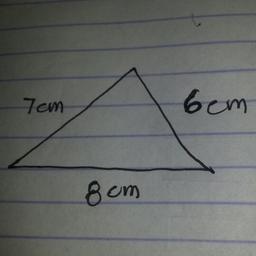 7cm
6cm
8cm